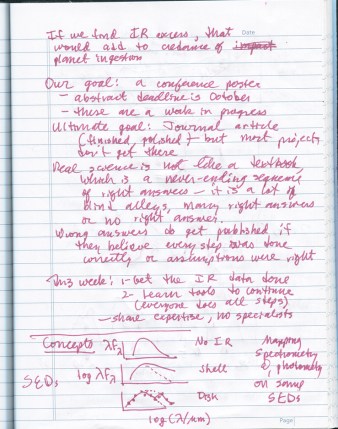 If we find IR excess, that Date
would add to credence of impact
planet ingestion
Our goal: a conference poster
- abstract deadline is October
- these are a work in progress
Ultimate goal: Journal article
(finished, polished) - but most projects
don't get there
Real science is not like a textbook
which is a never-ending sequence
of right answers - it is a lot of
blind alleys, many right answers
or no right answer.
Wrong answers do get published if
they believe every step was done
correctly or assumptions were right
This week: 1- Get the IR data done
2- Learn tools to continue
(everyone does all steps)
- share expertise, no specialists
Concepts λFλ No IR Mapping
spectrometry
SEDs log λFλ Shell & photometry
on same
Disk SEDs
log (λ/μm)
Page